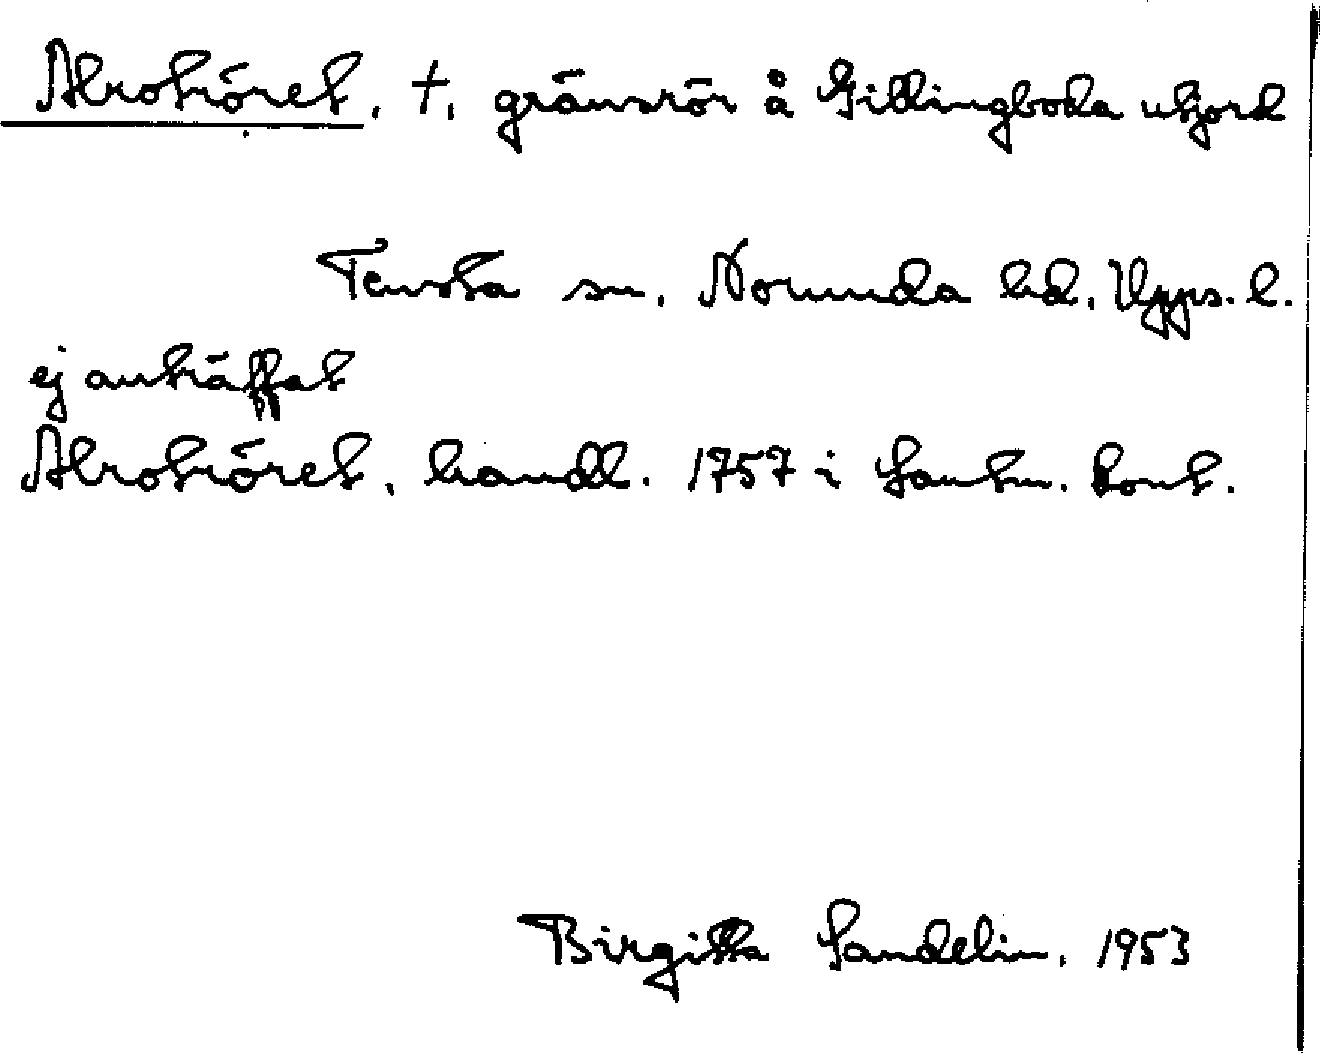 Alrotröret, †, gränsrör å Gillingboda utjord
Tensta sn. Norunda hd. Upps. l.
ej anträffat
Alrotröret, handl. 1757 i Lantm. kont.
Birgitta Sandelin, 1953